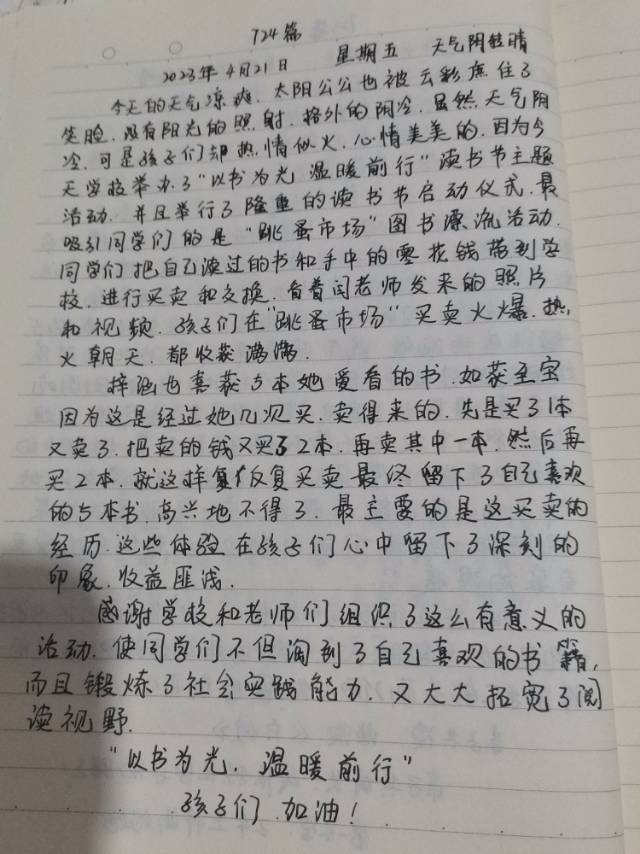 724篇
2023年4月21日 星期五 天气阴转晴
今天的天气凉爽.太阳公公也被云彩庶住了
笑脸.没有阳光的照射.格外的阴冷.虽然天气阴
冷.可是孩子们却热情似火.心情美美的.因为今
天学校举办了“以书为光 温暖前行”读书节主题
活动.并且举行了隆重的读书节启动仪式.最
吸引同学们的是“跳蚤市场”图书漂流活动.
同学们把自己读过的书和手中的零花钱带到学
校.进行买卖和交换.看着闫老师发来的照片
和视频.孩子们在“跳蚤市场”买卖火爆.热
火朝天.都收获满满.
梓涵也喜获5本她爱看的书.如获至宝
因为这是经过她几次买.卖得来的.先是买了1本
又卖了.把卖的钱又买了2本.再卖其中一本.然后再
买2本.就这样反复买卖最终留下了自己喜欢
的5本书.高兴地不得了.最主要的是这买卖的
经历.这些体验在孩子们心中留下了深刻的
印象.收益匪浅.
感谢学校和老师们组织了这么有意义的
活动.使同学们不但淘到了自己喜欢的书籍,
而且锻炼了社会实践能力.又大大拓宽了阅
读视野.
“以书为光.温暖前行”
孩子们 加油!